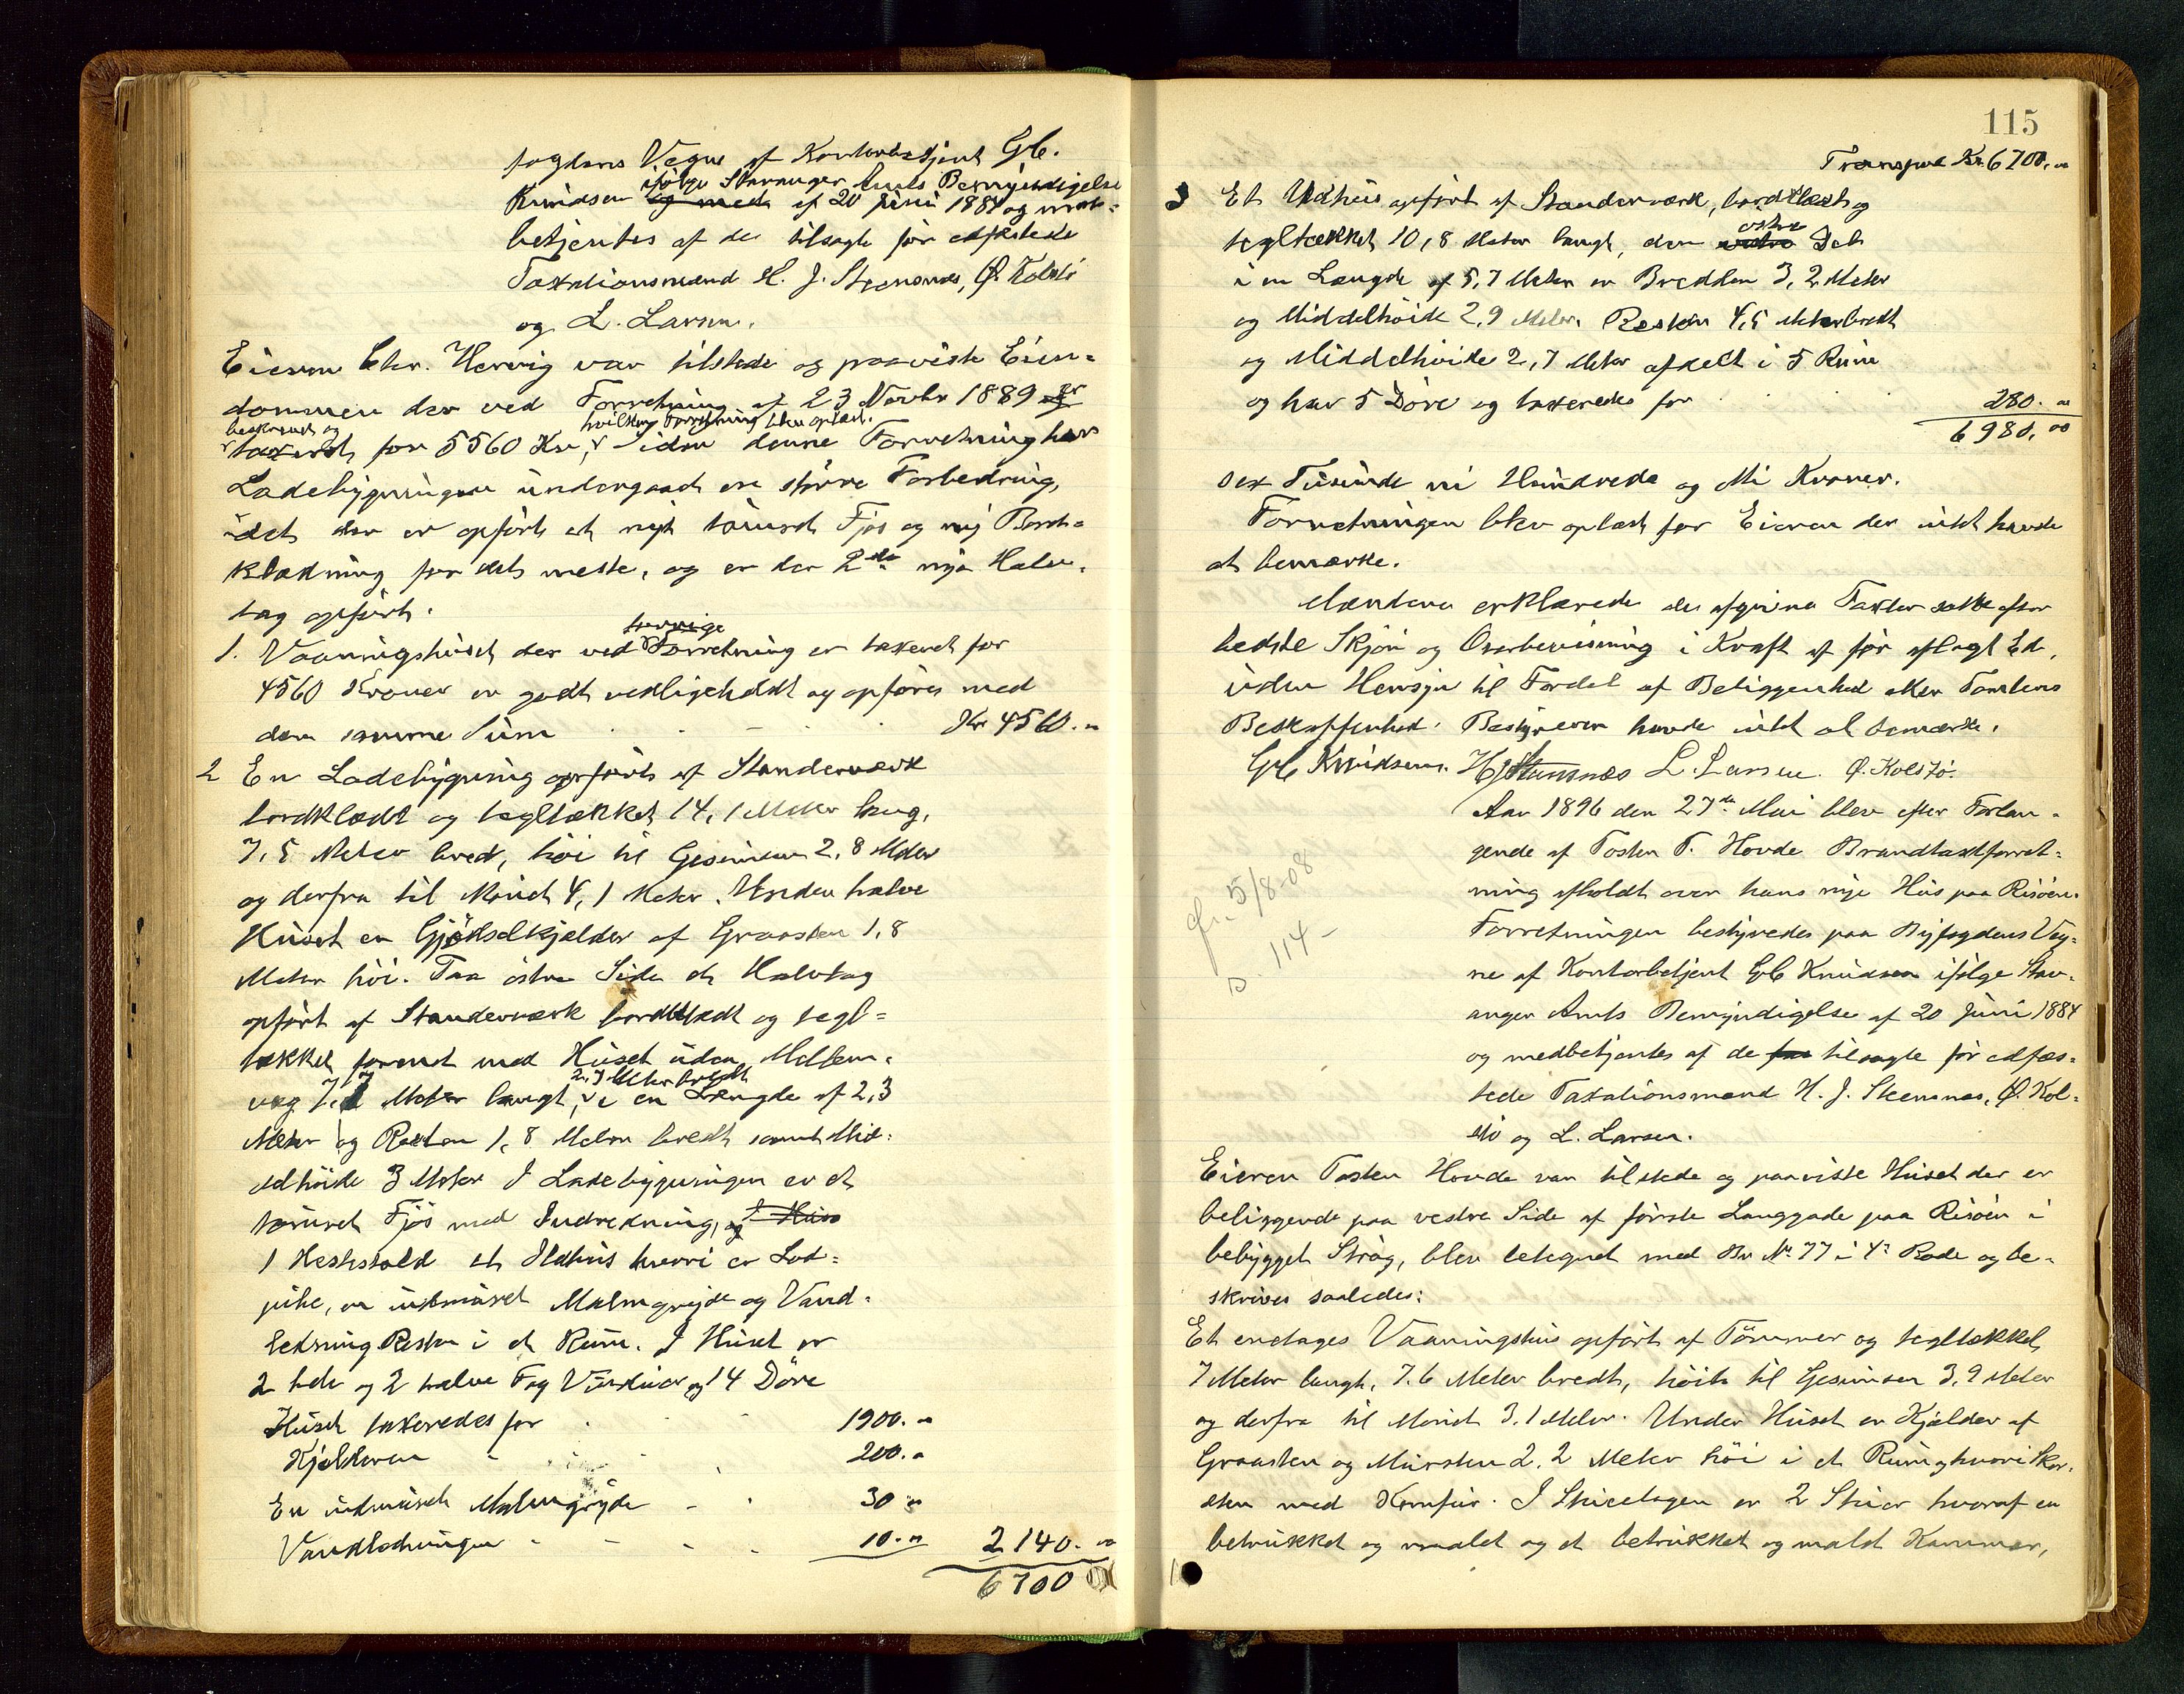 fogdens Vegne af Kontorbetjent Gb.
ifölge Stavanger Amts Bemyndigelse
Knudsen og med af 20 Juni 1884 og med-
betjentes af de tilsagte för edfæstede
Taxationsmænd H. J. Steensnæs, Ø. Kolstö
og L. Larsen.
Eieren Chr. Hervig var tilstede og paaviste Eien-
dommen der ved Forretning af 23 Novbr 1889 er
beskrevet og hvilken Forretning blev oplæst.
taxeret for 5560 Kr, siden denne Forretning har
Ladebygningen undergaaet en större Forbedring,
idet der er opfört et nyt tömret Fjös og ny Bord-
klædning for det meste, og er der 2de nye Halv-
tag opfört.
forrige
1. Vaaningshuset der ved Forretning er taxeret for
4560 Kroner er godt vedligeholdt og opföres med
den samme Sum Kr 4560.-
2 En Ladebygning opfört af Standerværk
bordklædt og tegltækket 14,1 Meter lang,
7,5 Meter bred, höi til Gesimsen 2,8 Meter
og derfra til Mönet 4,1 Meter. Under halve
Huset er Gjödselkjælder af Graasten 1,8
Meter höi. Paa östre Side et Halvtag
opfört af Standerværk bordklædt og tegl-
tækket forenet med Huset uden Mellem-
2,7 Meter bredt
væg 7,7 Meter langt, i en Længde af 2,3
Meter og Resten 1,8 Meter bredt samt Mid-
delhöide 3 Meter I Ladebygningen er et
tömret Fjös med Indredning, og 1 Hus
1 Hestestald et Ildhus hvori er Lod-
pibe, en indmuret Malmgryde og Vand-
ledning Resten i et Rum. I Huset er
2 hele og 2 halve Fag Vinduer og 14 Döre
Huset taxeredes for 1900.-
Kjelderen 200.-
En indmuret Malmgryde - 30 -
Vandledningen - 10.- 2140.-
6700
115
Transport Kr. 6700.-
3 Et Udhus opfört af Standerværk, bordklædt og
östre
tegltækket 10,8 Meter langt, den vestre Del
i en Længde af 5,7 Meter er Bredden 3,2 Meter
og Middelhöide 2,9 Meter. Resten 4,5 Meter bredt
og Middelhöide 2,7 Meter afdelt i 5 Rum
og har 5 Döre og taxeredes for 280.-
6980,00
sex Tusinde ni Hundrede og otti Kroner.
Forretningen blev oplæst for Eieren der intet havde
at bemærke.
Mændene erklærede de afgivne Taxter satte efter
bedste Skjön og Overbevisning i Kraft af för aflagt Ed,
uden Hensyn til Fordel af Beliggenhed eller Tomtens
Beskaffenhed. Bestyreren havde intet at bemærke.
Gb Knudsen. H J Steensnæs L. Larsen. Ø. Kolstö.
Aar 1896 den 27de Mai blev efter Forlan-
gende af Tosten T. Hovde Brandtaxtforret-
ning afholdt over hans nye Hus paa Risöen.
Forretningen bestyredes paa Byfogdens Veg-
ne af Kontorbetjent Gb Knudsen ifölge Stav-
anger Amts Bemyndigelse af 20 Juni 1884
og medbetjentes af de for tilsagte för edfæs-
tede Taxationsmænd H. J. Steensnæs, Ø. Kol-
stö og L. Larsen.
5/8-08
s 114-
Eieren Tosten Hovde var tilstede og paaviste Huset der er
beliggende paa vestre Side af förste Langgade paa Risöen i
bebygget Strög, blev betegnet med Hs No 77 i 4de Rode og be-
skrives saaledes:
Et enetages Vaaningshus opfört af Tömmer og tegltækket,
7 Meter langt, 7,6 Meter bredt, höit til Gesimsen 3,9 Meter
og derfra til Mönet 3,1 Meter. Under Huset er Kjælder af
Graasten og Mursten 2,2 Meter höi i et Rum og hvori Skor-
sten med Komfur. I Stueetagen er 2 Stuer hvoraf en
betrukket og malet og et betrukket og malet Kammer,